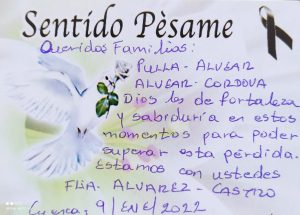 Sentido Pèsame
Queridos Familias:
PULLA - ALVEAR
ALVEAR - CORDOVA
Dios les de fortaleza
y sabiduría en estos
momentos para poder
superar esta pérdida.
Estamos con ustedes
FLIA - ALVAREZ - CASTRO
Cuenca, 9/ENE/2022